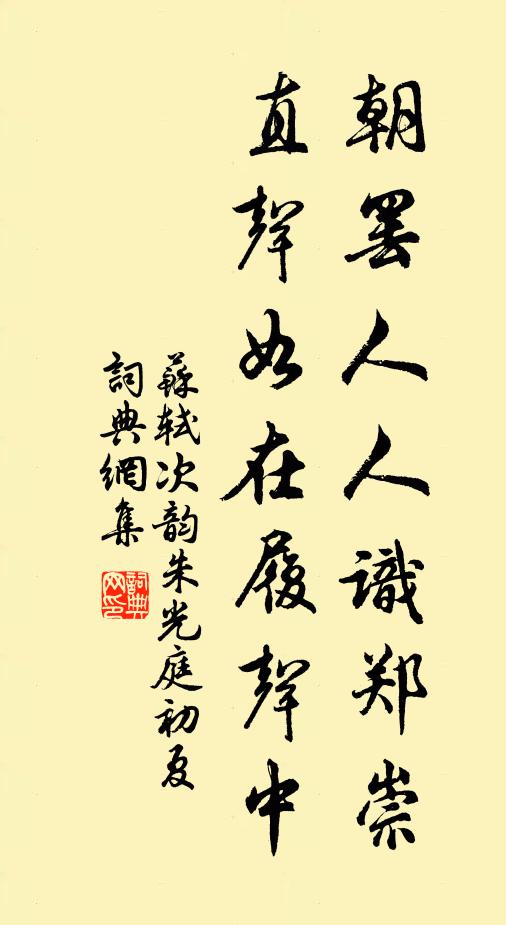 朝罢人人識郑崇
直聲如在履聲中
蘇轼次韵朱光庭初夏
詞典網集
詞典网印